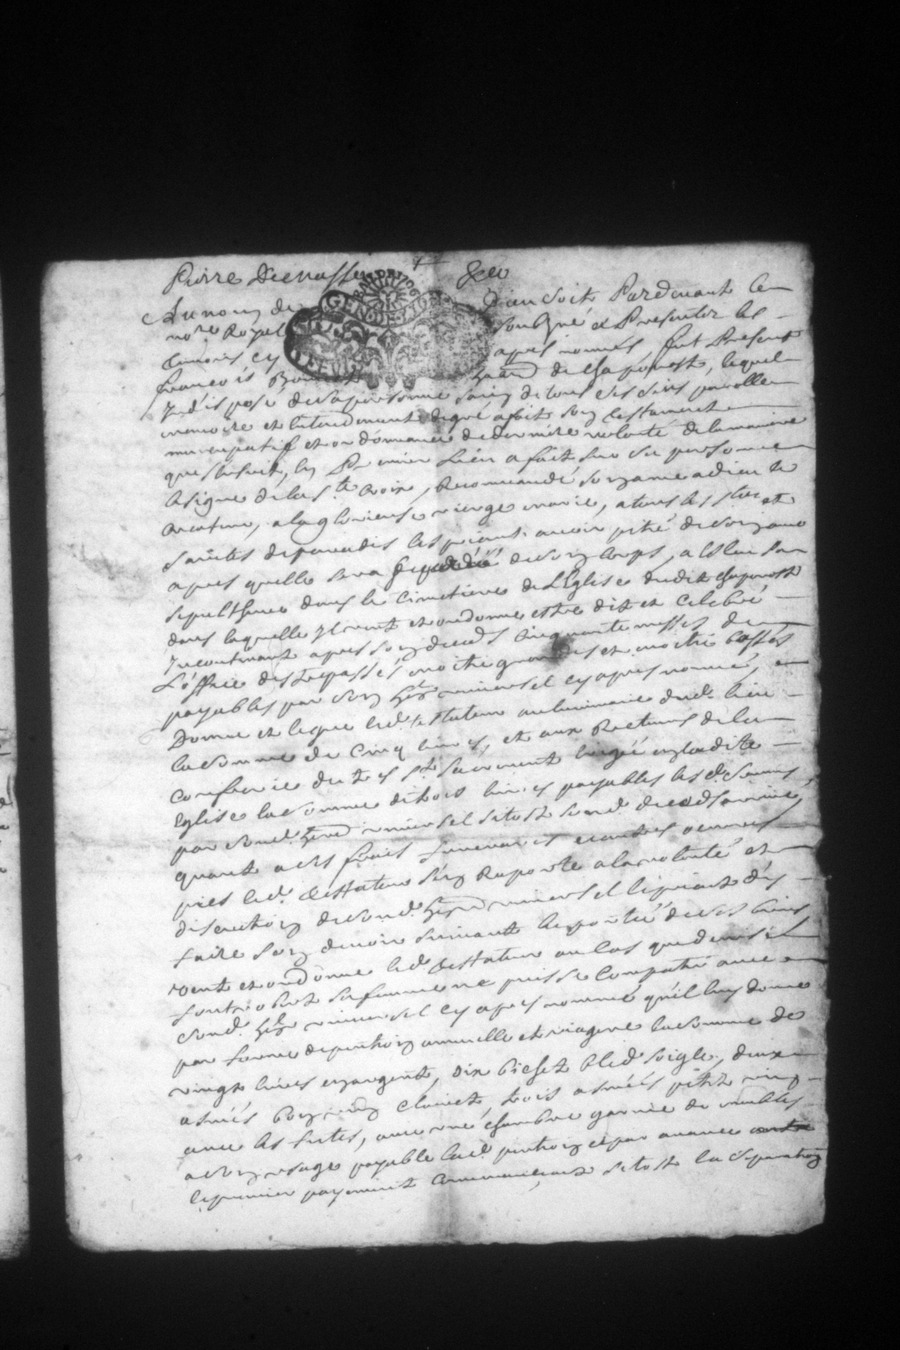 Pierre
GEN. DE LION
Au nom de Dieu Soit Pardevant le
no.re Royal Soubzné et Presenter les
temoins cy apres nommés fut Present
francois de Chaponost, lequel
dispose de sa personne sain de tous ses sens parolle
memoire et entendement de gré a fait son testament
nuncupatif et ordonnance de derniere volonté de la maniere
que sensuit, en Premier Lieu a fait sur sa personne
le signe de la S.te Croix, Recommandé son ame a dieu le
createur, a la glorieuse vierge marie, a tous les s.ts et
saintes de paradis les priant avoir pitié de son ame
apres quelle sera separée de son corps, a Eslu sa
sepulthure dans le Cimetiere de L'Eglise dudit chaponost
dans laquelle Il veut et ordonne estre dit et celebré
Incontinant apres son deceds Cinquante messes de
L'office des trepassés moitié grandes et moitié basses
payables par son her universel cy apres nommé,
Donne et legue led. testateur au luminaire dud. lieu
la somme de cinq livres, et aux Recteurs de la
confrerie du tres s.t sacrement erigée en ladite
Eglise la somme de trois livres payables les d. sommes
par sond. universel sitost sond. deceds arrivé,
quant a ses frais funeraires et autres oeuvres
pies led. testateur s'en Raporte a la volonté et
discretion de sond. universel le priant d'y
faire son devoir suivant la portée de ses biens
veut et ordonne led. testateur au cas que
sa femme ne puisse compatir avec
sond. universel cy apres nommé qu'il luy donne
par forme de pention annuelle et viagere la somme de
vingt livres en argent, dix bichet bled seigle, deux
asnées bon vin clairet trois asnées petit vin
avec les futes, avec une chambre garnie de meubles
a son usage payable lad. pention par avance
le premier payement commencant sitost la separation